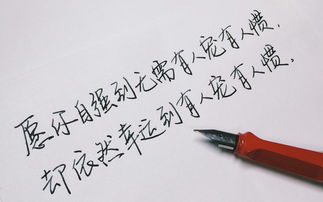 愿你自强到无需有人宠有人惯，
却依然幸运到有人宠有人惯。